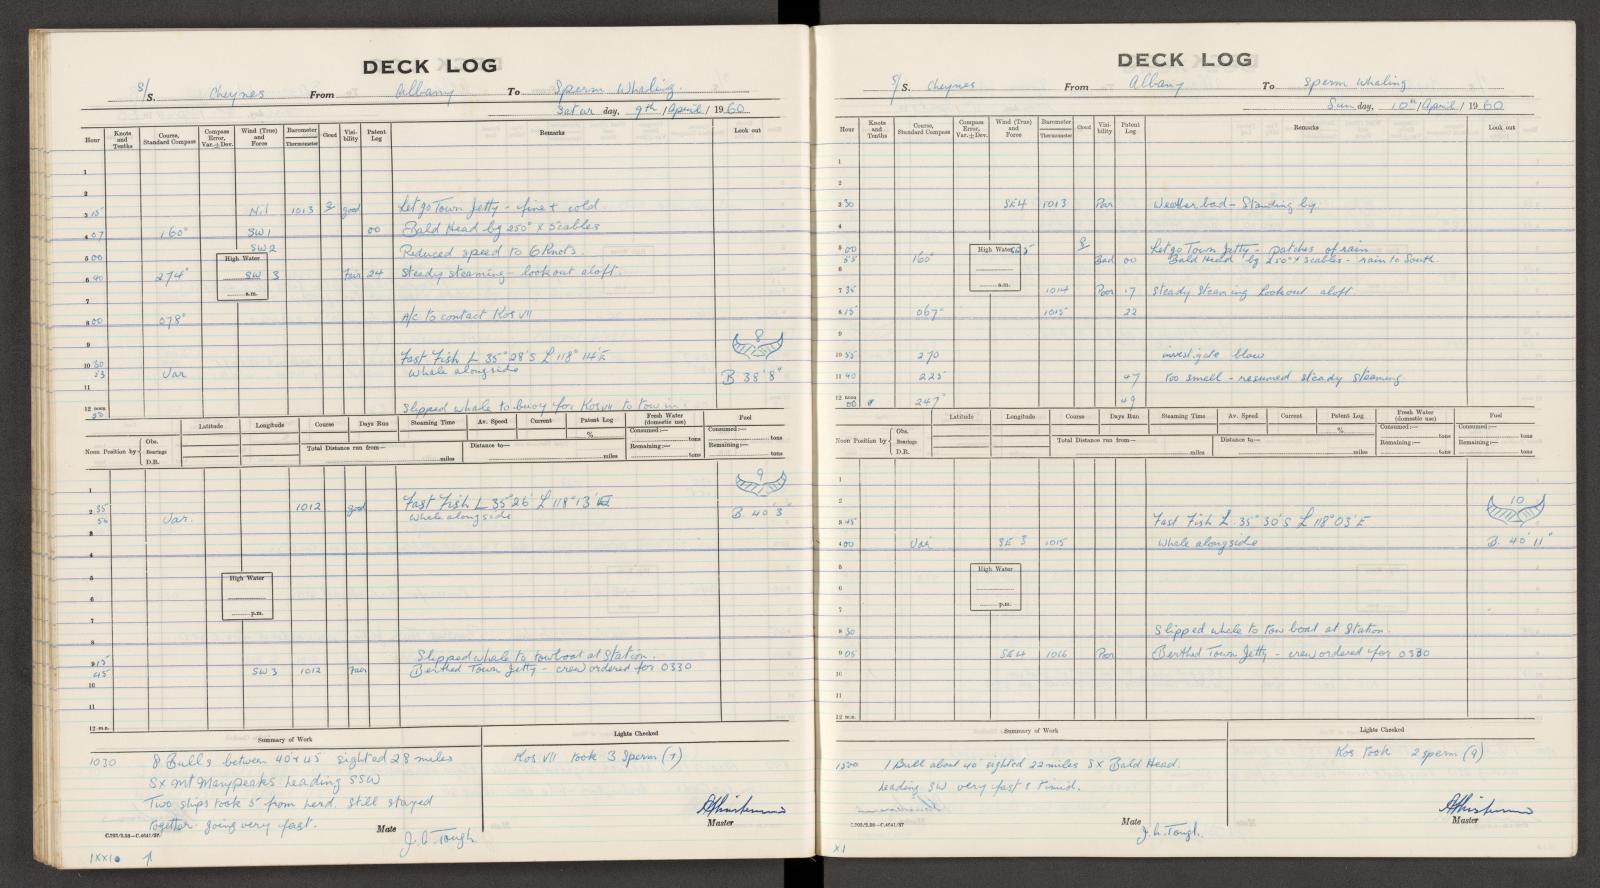 DECK LOG
S/S. Cheynes From Albany To Sperm Whaling
Satur day, 9th /April/ 1960
Hour Knots and Tenths Course, Standard Compass Compass Error, Var.±Dev. Wind (True) and Force Barometer Thermometer Cloud Visibility Patent Log Remarks Look out
1
2
3 15 Nil 1013 good Let go Town Jetty - fine + cold
4 07 160° SW1 00 Bald Head by 250° x 5 cables
SW2
5 00 Reduced speed to 6 Knots.
High Water
6 40 274° SW 3 Fair 24 Steady steaming - lookout aloft.
a.m.
7
8 00 078° A/c to contact Kos VII
9 8
10 30 Fast Fish L 35° 28'S L 118° 14'E
53 Var whale alongside B 38'8"
11
12 noon 50 Slipped whale to buoy for Kos VII to tow in.
Latitude Longitude Course Days Run Steaming Time Av. Speed Current Patent Log Fresh Water (domestic use) Fuel
% Consumed:— tons Consumed:— tons
Noon Position by Obs. Bearings D.R. Total Distance run from— miles Distance to— miles Remaining:— tons Remaining:— tons
1 9
2 35 1012 good Fast Fish L 35° 26' L 118° 13' E
56 Var. whale alongside B. 40'3"
3
4
5
High Water
6
p.m.
7
8
9 15 Slipped whale to towboat at Station.
45 SW 3 1012 Fair Berthed Town Jetty - crew ordered for 0330
10
11
12 m.n.
Summary of Work Lights Checked
1030 8 Bulls between 40 & 45' sighted 28 miles Kos VII took 3 Sperm (7)
S x Mt Manypeaks heading SSW
Two ships took 5 from herd. Still stayed
together going very fast.
Mate J. C. Tough Master
C.702/2.58—C.4641/57
DECK LOG
S/S. Cheynes From Albany To Sperm Whaling
Sun day, 10th /April/ 1960
Hour Knots and Tenths Course, Standard Compass Compass Error, Var.±Dev. Wind (True) and Force Barometer Thermometer Cloud Visibility Patent Log Remarks Look out
1
2
3 30 SE4 1013 Poor Weather bad - Standing by.
4
5 00 High Water Let go Town Jetty - patches of rain
55 160° Bad 00 Bald Head by 250° x 5 cables - rain to South.
6
a.m.
7 35 1014 Poor 17 Steady Steaming lookout aloft.
8 15 067° 1015 22
9
10 55 270 investigate blow
11 40 225 47 too small - resumed steady steaming
12 noon 00 247° 49
Latitude Longitude Course Days Run Steaming Time Av. Speed Current Patent Log Fresh Water (domestic use) Fuel
% Consumed:— tons Consumed:— tons
Noon Position by Obs. Bearings D.R. Total Distance run from— miles Distance to— miles Remaining:— tons Remaining:— tons
1
2 10
3 45 Fast Fish L. 35° 30'S L 118° 03' E
4 00 Var SE 3 1015 whale alongside B. 40'11"
5
High Water
6
p.m.
7
8 30 Slipped whale to tow boat at Station.
9 05 SE4 1016 Poor Berthed Town Jetty - crew ordered for 0330
10
11
12 m.n.
Summary of Work Lights Checked
1500 1 Bull about 40' sighted 22 miles S x Bald Head. Kos took 2 sperm (9)
heading SW very fast & timid.
Mate J. C. Tough. Master
C.702/2.58—C.4641/57
XI